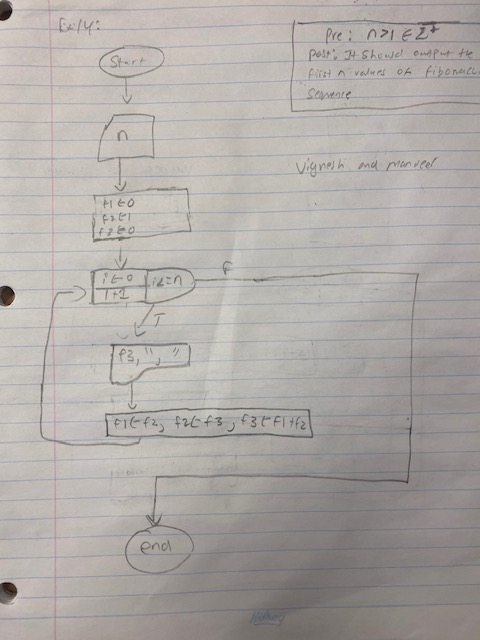 Ex14:
Pre: n>1 ∈ Z⁺
Post: It should output the
first n values of fibonacci
sequence
Start
n
Vignesh and manveer
f1←0
f2←1
f3←0
i←0
i<=n
F
i+1
T
f3, ", "
f1←f2, f2←f3, f3←f1+f2
end